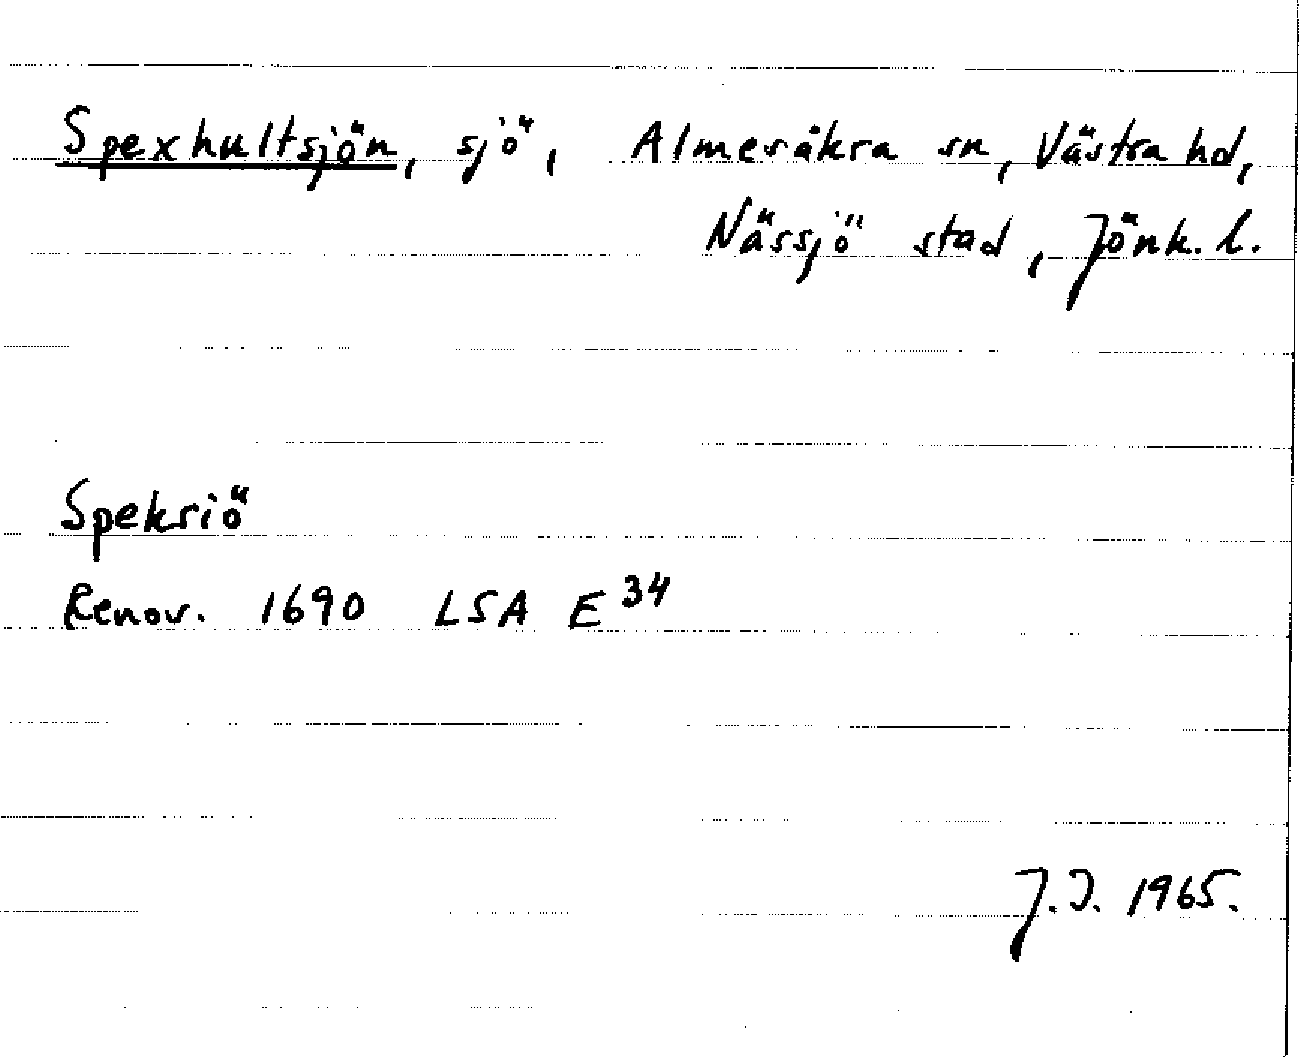 Spexhultsjön, sjö, Almesåkra sn, Västra hd,
Nässjö stad, Jönk. l.
Speksiö
Renov. 1690 LSA E 34
J.I. 1965.